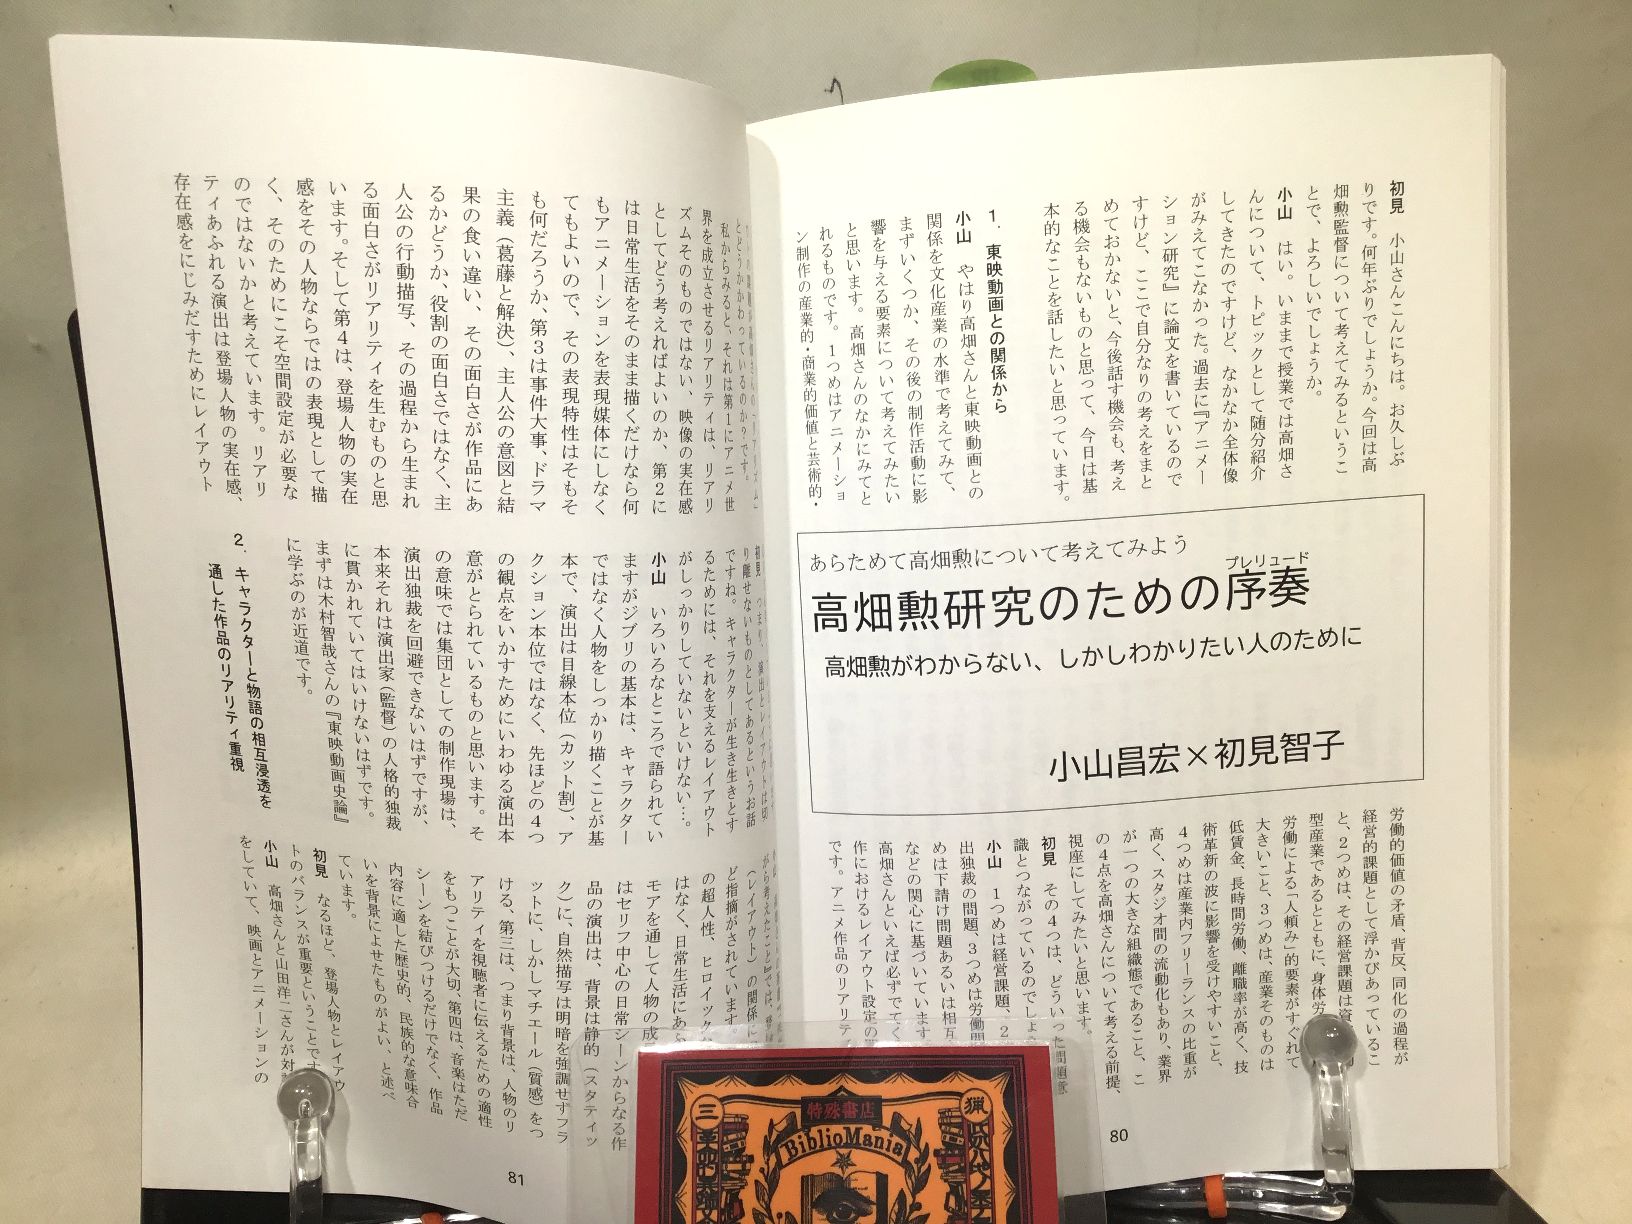 初見　小山さんこんにちは。お久しぶ
りです。何年ぶりでしょうか。今回は高
畑勲監督について考えてみるというこ
とで、よろしいでしょうか。
小山　はい。いままで授業では高畑さ
んについて、トピックとして随分紹介
してきたのですけど、なかなか全体像
がみえてこなかった。過去に『アニメー
ション研究』に論文を書いているので
すけど、ここで自分なりの考えをまと
めておかないと、今後話す機会も、考え
る機会もないものと思って、今日は基
本的なことを話したいと思っています。
1．東映動画との関係から
小山　やはり高畑さんと東映動画との
関係を文化産業の水準で考えてみて、
まずいくつか、その後の制作活動に影
響を与える要素について考えてみたい
と思います。高畑さんのなかにみてと
れるものです。1つめはアニメーショ
ン制作の産業的・商業的価値と芸術的・
あらためて高畑勲について考えてみよう
高畑勲研究のための序奏
プレリュード
高畑勲がわからない、しかしわかりたい人のために
小山昌宏×初見智子
労働的価値の矛盾、背反、同化の過程が
経営的課題として浮かびあっているこ
と、2つめは、その経営課題は
型産業であるとともに、身体労
労働による「人頼み」的要素がすぐれて
大きいこと、3つめは、産業そのものは
低賃金、長時間労働、離職率が高く、技
術革新の波に影響を受けやすいこと、
4つめは産業内フリーランスの比重が
高く、スタジオ間の流動化もあり、業界
が一つの大きな組織態であること、こ
の4点を高畑さんについて考える前提、
視座にしてみたいと思います。
初見　その4つは、どういった問題意
識とつながっているのでしょ
小山　1つめは経営課題、2
出独裁の問題、3つめは労働問
めは下請け問題あるいは相互
などの関心に基づいています
高畑さんといえば必ずでてく
作におけるレイアウト設定の
です。アニメ作品のリアリティ
80
とどうかかわっているのか？です。
私からみると、それは第1にアニメ世
界を成立させるリアリティは、リアリ
ズムそのものではない、映像の実在感
としてどう考えればよいのか、第2に
は日常生活をそのまま描くだけなら何
もアニメーションを表現媒体にしなく
てもよいので、その表現特性はそもそ
も何だろうか、第3は事件大事、ドラマ
主義（葛藤と解決）、主人公の意図と結
果の食い違い、その面白さが作品にあ
るかどうか、役割の面白さではなく、主
人公の行動描写、その過程から生まれ
る面白さがリアリティを生むものと思
います。そして第4は、登場人物の実在
感をその人物ならではの表現として描
く、そのためにこそ空間設定が必要な
のではないかと考えています。リアリ
ティあふれる演出は登場人物の実在感、
存在感をにじみだすためにレイアウト
初見　つまり、演出とレイアウトは切
り離せないものとしてあるというお話
ですね。キャラクターが生き生きとす
るためには、それを支えるレイアウト
がしっかりしていないといけない…。
小山　いろいろなところで語られてい
ますがジブリの基本は、キャラクター
ではなく人物をしっかり描くことが基
本で、演出は目線本位（カット割）、ア
クション本位ではなく、先ほどの4つ
の観点をいかすためにいわゆる演出本
意がとられているものと思います。そ
の意味では集団としての制作現場は、
演出独裁を回避できないはずですが、
本来それは演出家（監督）の人格的独裁
に貫かれていてはいけないはずです。
まずは木村智哉さんの『東映動画史論』
に学ぶのが近道です。
2．キャラクターと物語の相互浸透を
通した作品のリアリティ重視
がら考えたこと』では、
（レイアウト）の関係に
ど指摘がされています。
の超人性、ヒロイック
はなく、日常生活にあ
モアを通して人物の成
はセリフ中心の日常シーンからなる作
品の演出は、背景は静的（スタティッ
ク）に、自然描写は明暗を強調せずフラ
ットに、しかしマチエール（質感）をつ
ける、第三は、つまり背景は、人物のリ
アリティを視聴者に伝えるための適性
をもつことが大切、第四は、音楽はただ
シーンを結びつけるだけでなく、作品
内容に適した歴史的、民族的な意味合
いを背景によせたものがよい、と述べ
ています。
初見　なるほど、登場人物とレイアウ
トのバランスが重要ということです
小山　高畑さんと山田洋二さんが対
をしていて、映画とアニメーションの
81
特殊書店
BiblioMania
三
猟